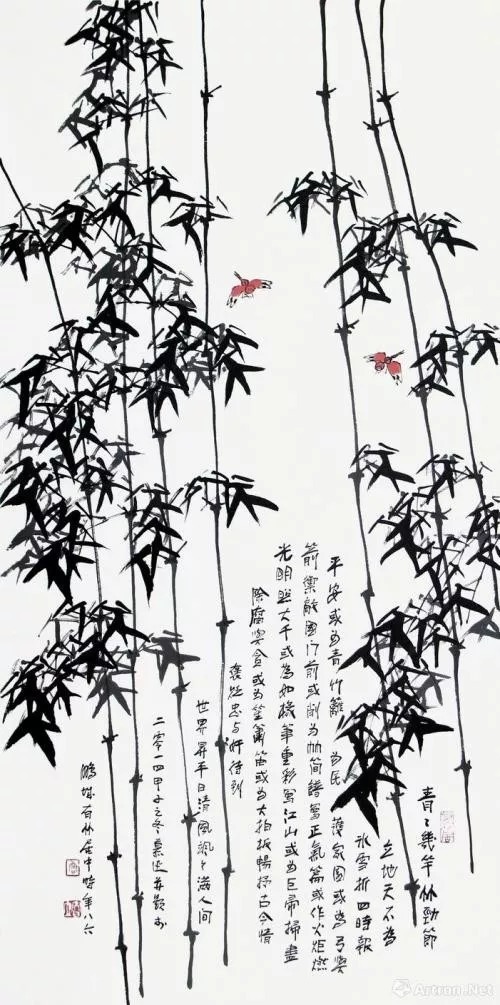 青々幾竿竹勁節
立地天不為
冰雪折四時報
平安或為青竹籬 為民護家園或為弓與
箭禦敵國门前或削为竹简譜寫正氣篇或作火炬燃
光明照大千或為如椽筆重彩寫江山或為巨帚掃盡
除腐與貪或为笙簫笛或为大拍板暢抒古今情
褒贬忠与奸待到
世界昇平日清風飒々满人间
二零一四甲午之冬 并题於
鵬城有竹居中時年八六
Artron.Net